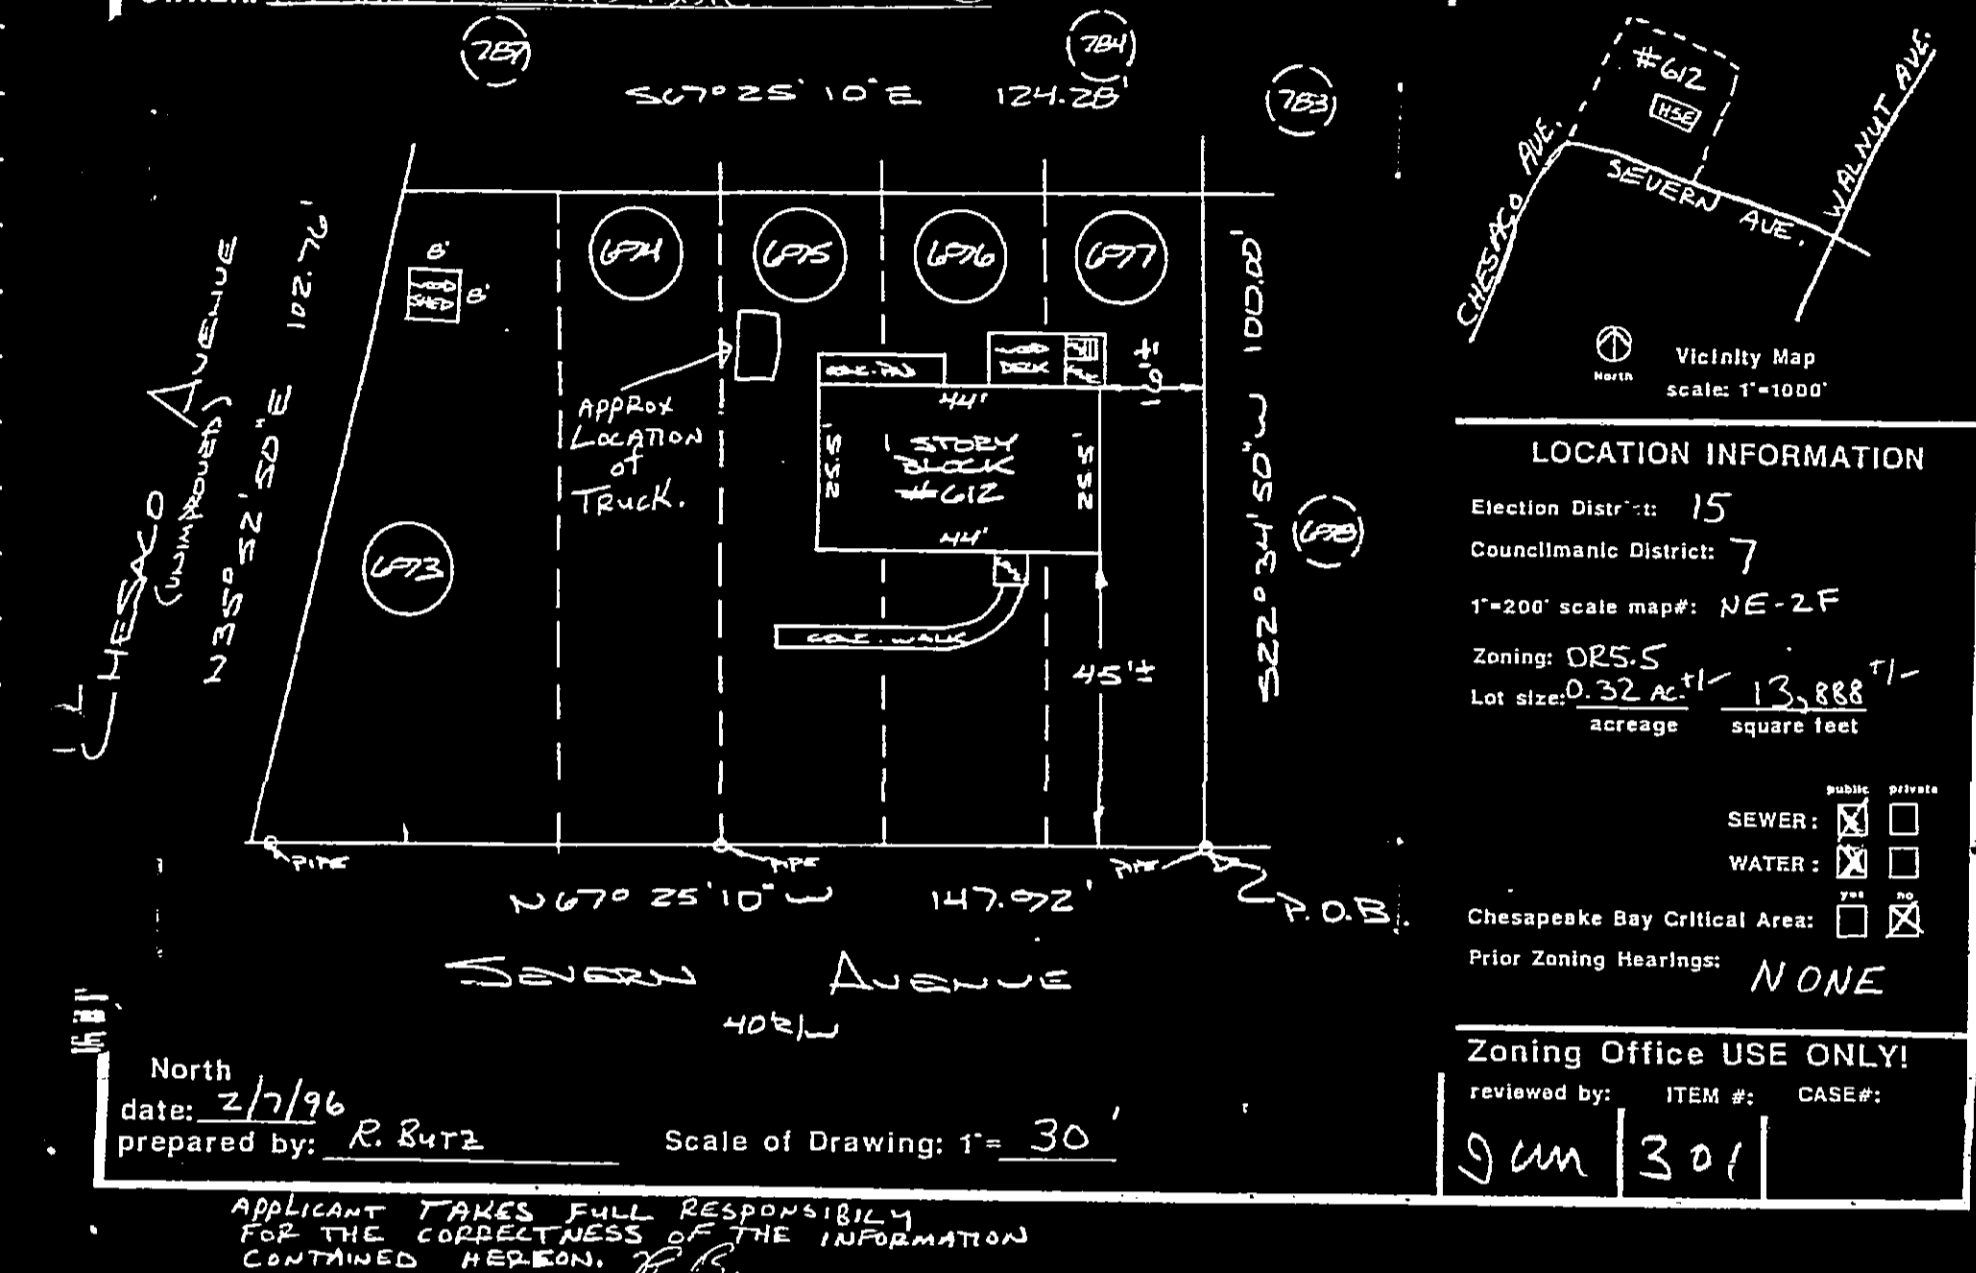 787
784
783
S67° 25' 10" E 124.28'
CHESACO AVENUE
(UNIMPROVED)
N 35° 52' 50" E 102.76'
8'
WOOD
SHED
8'
674
675
676
677
673
678
APPROX
LOCATION
of
TRUCK.
CONC. PAD
WOOD
DECK
16'±
44'
25.5'
1 STORY
BLOCK
#612
25.5'
44'
CONC. WALK
45'±
S22° 34' 50" W 100.00'
PIPE
PIPE
PIPE
P.O.B.
N 67° 25' 10" W 147.92'
SEVERN AVENUE
40' R/W
North
date: 2/7/96
prepared by: R. BUTZ
Scale of Drawing: 1"= 30'
APPLICANT TAKES FULL RESPONSIBILY
FOR THE CORRECTNESS OF THE INFORMATION
CONTAINED HEREON.
#612
HSE
CHESACO AVE.
SEVERN AVE.
WALNUT AVE.
North
Vicinity Map
scale: 1"=1000'
LOCATION INFORMATION
Election District: 15
Councilmanic District: 7
1"=200' scale map#: NE-2F
Zoning: DR5.5
Lot size: 0.32 AC. +/- 13,888 +/-
acreage square feet
public private
SEWER:
WATER:
yes no
Chesapeake Bay Critical Area:
Prior Zoning Hearings: NONE
Zoning Office USE ONLY!
reviewed by: ITEM #: CASE#:
301